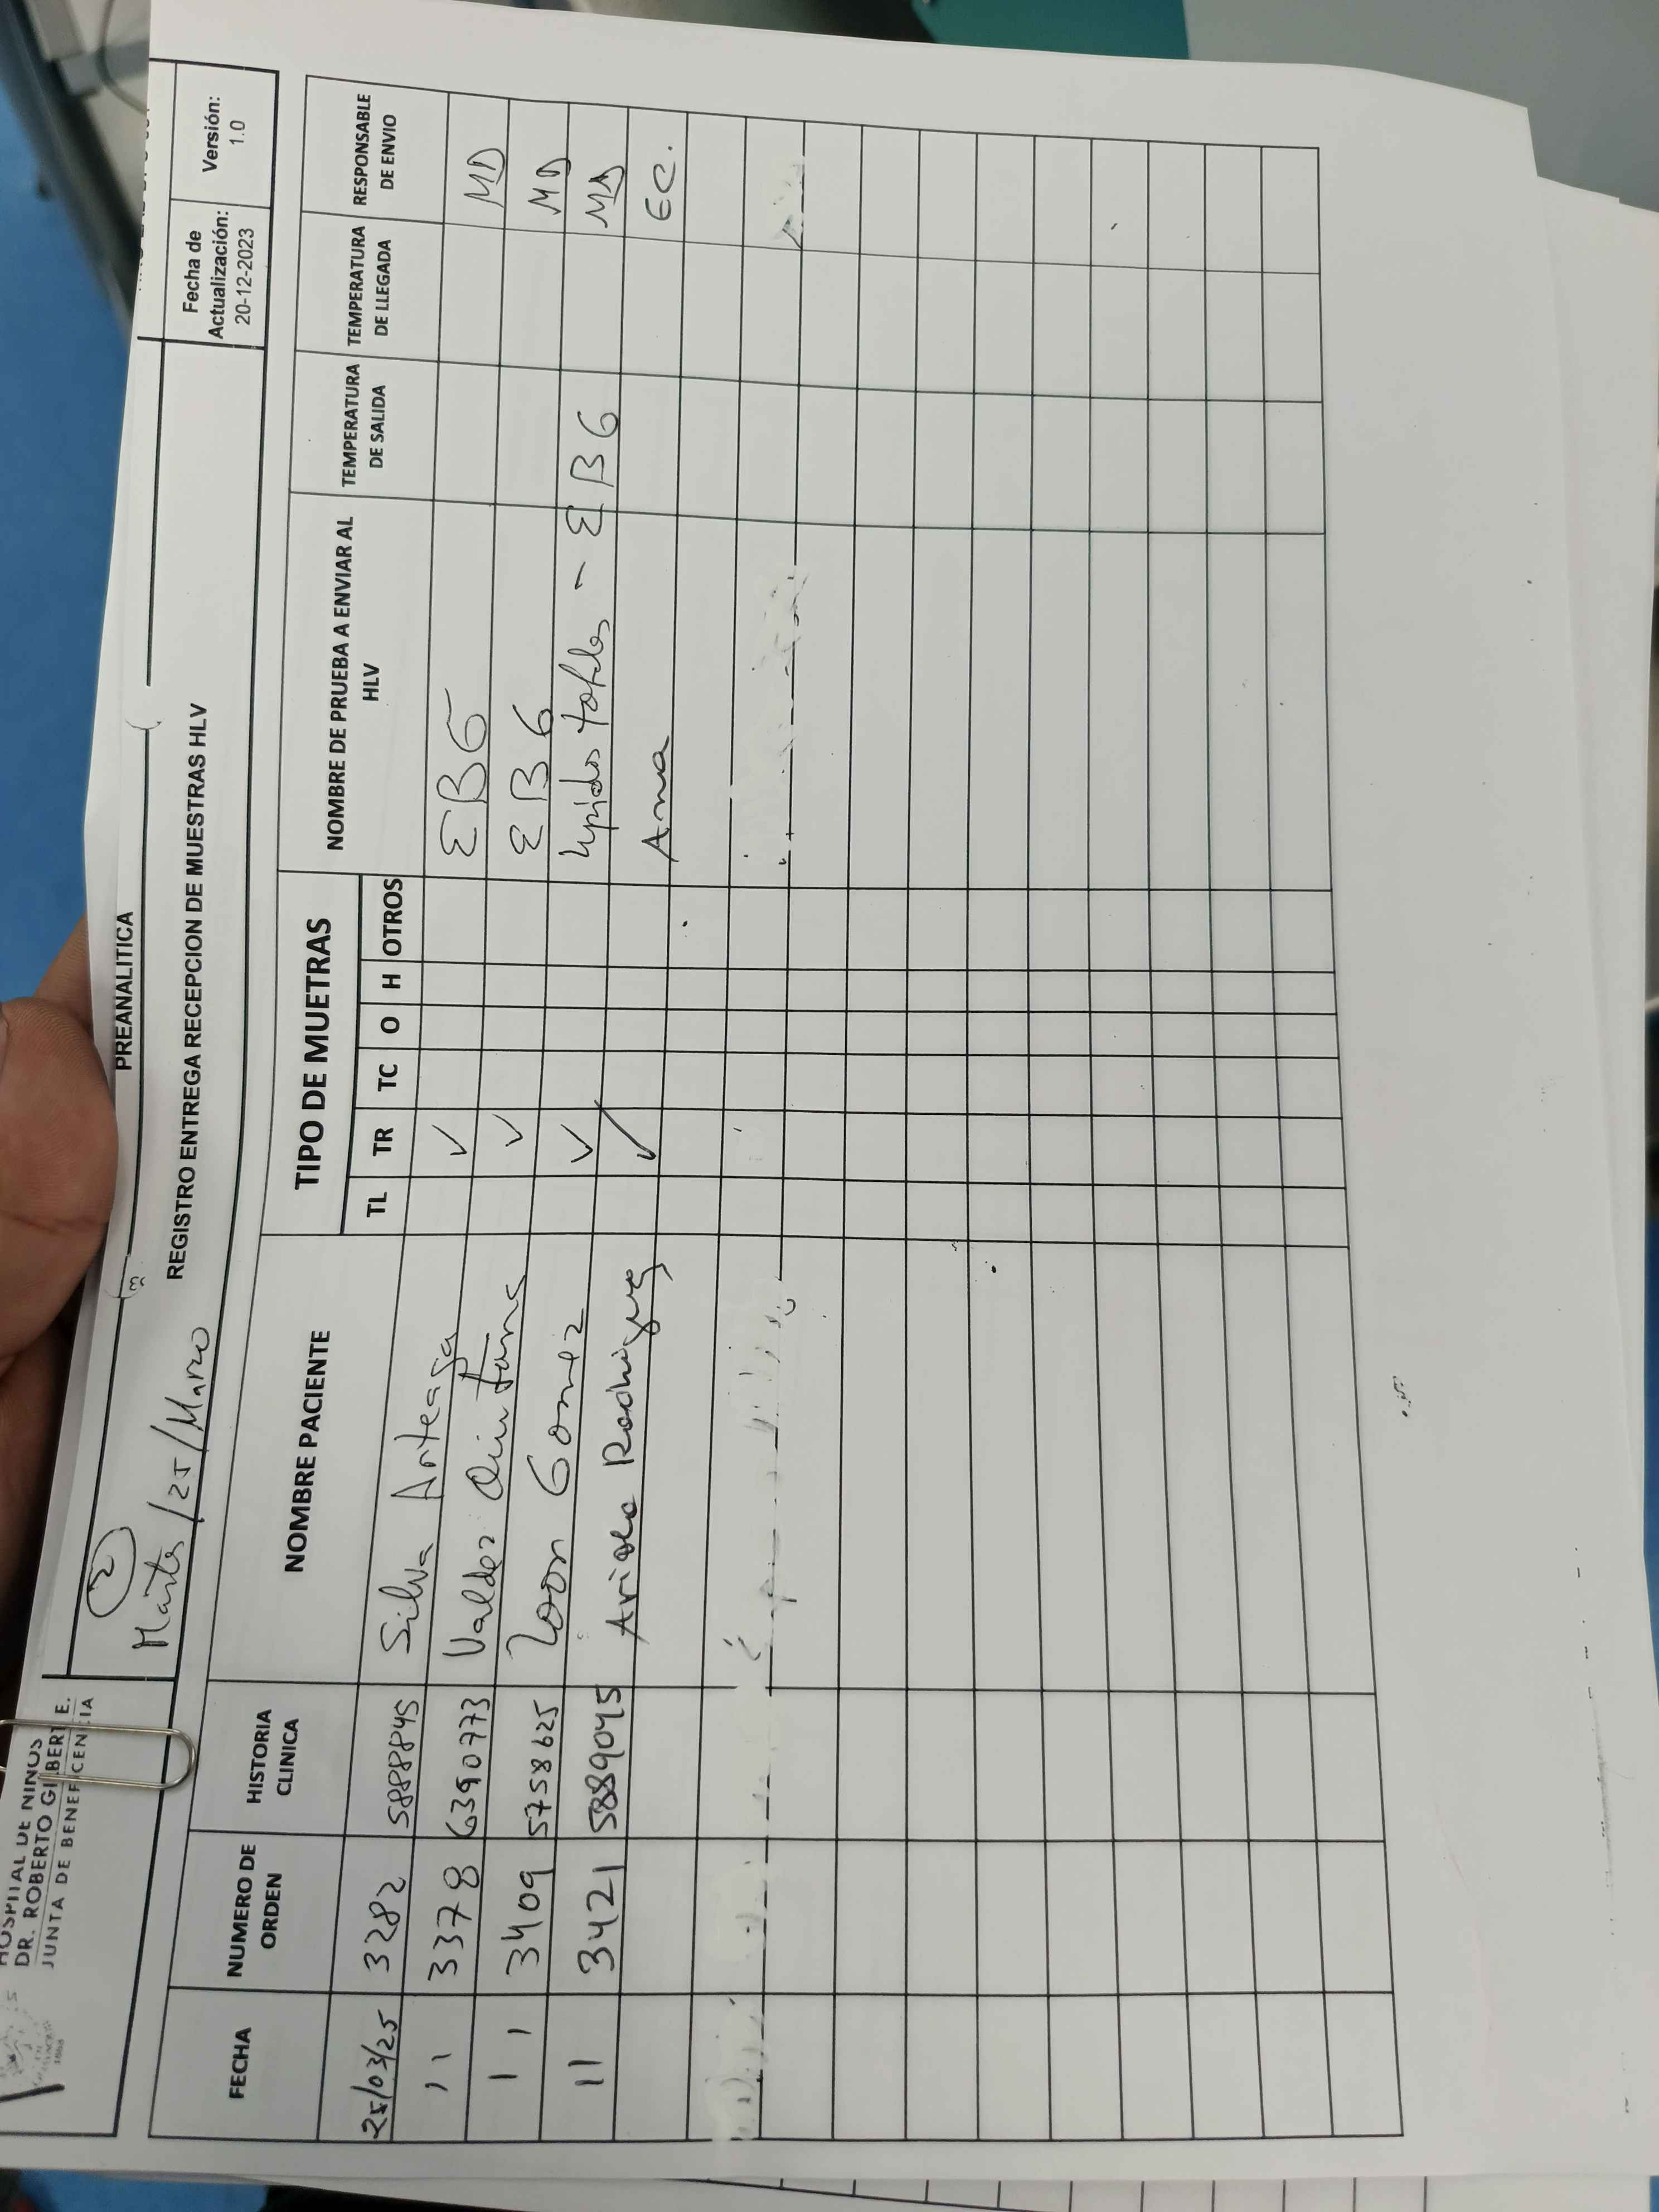 HOSPITAL DE NIÑOS
DR. ROBERTO GILBERT E.
JUNTA DE BENEFICENCIA
PREANALITICA
2
Martes /25/Marzo
REGISTRO ENTREGA RECEPCION DE MUESTRAS HLV
Fecha de Actualización: 20-12-2023
Versión: 1.0
FECHA NUMERO DE ORDEN HISTORIA CLINICA NOMBRE PACIENTE TIPO DE MUETRAS NOMBRE DE PRUEBA A ENVIAR AL HLV TEMPERATURA DE SALIDA TEMPERATURA DE LLEGADA RESPONSABLE DE ENVIO
TL TR TC O H OTROS
25/03/25 3282 5888845 Silva Arteaga ✓ EBG MD
11 3378 6390773 Valdez Quintana ✓ EBG MD
11 3409 5758625 Gomez ✓ lipidos totales - EBG MD
11 3421 5889045 Rodriguez ✓ Ama EC.